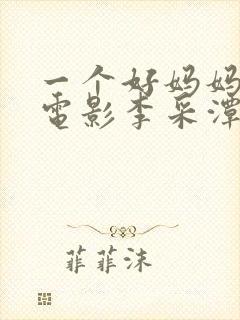 一个好妈妈
電影李采潭
菲菲沫